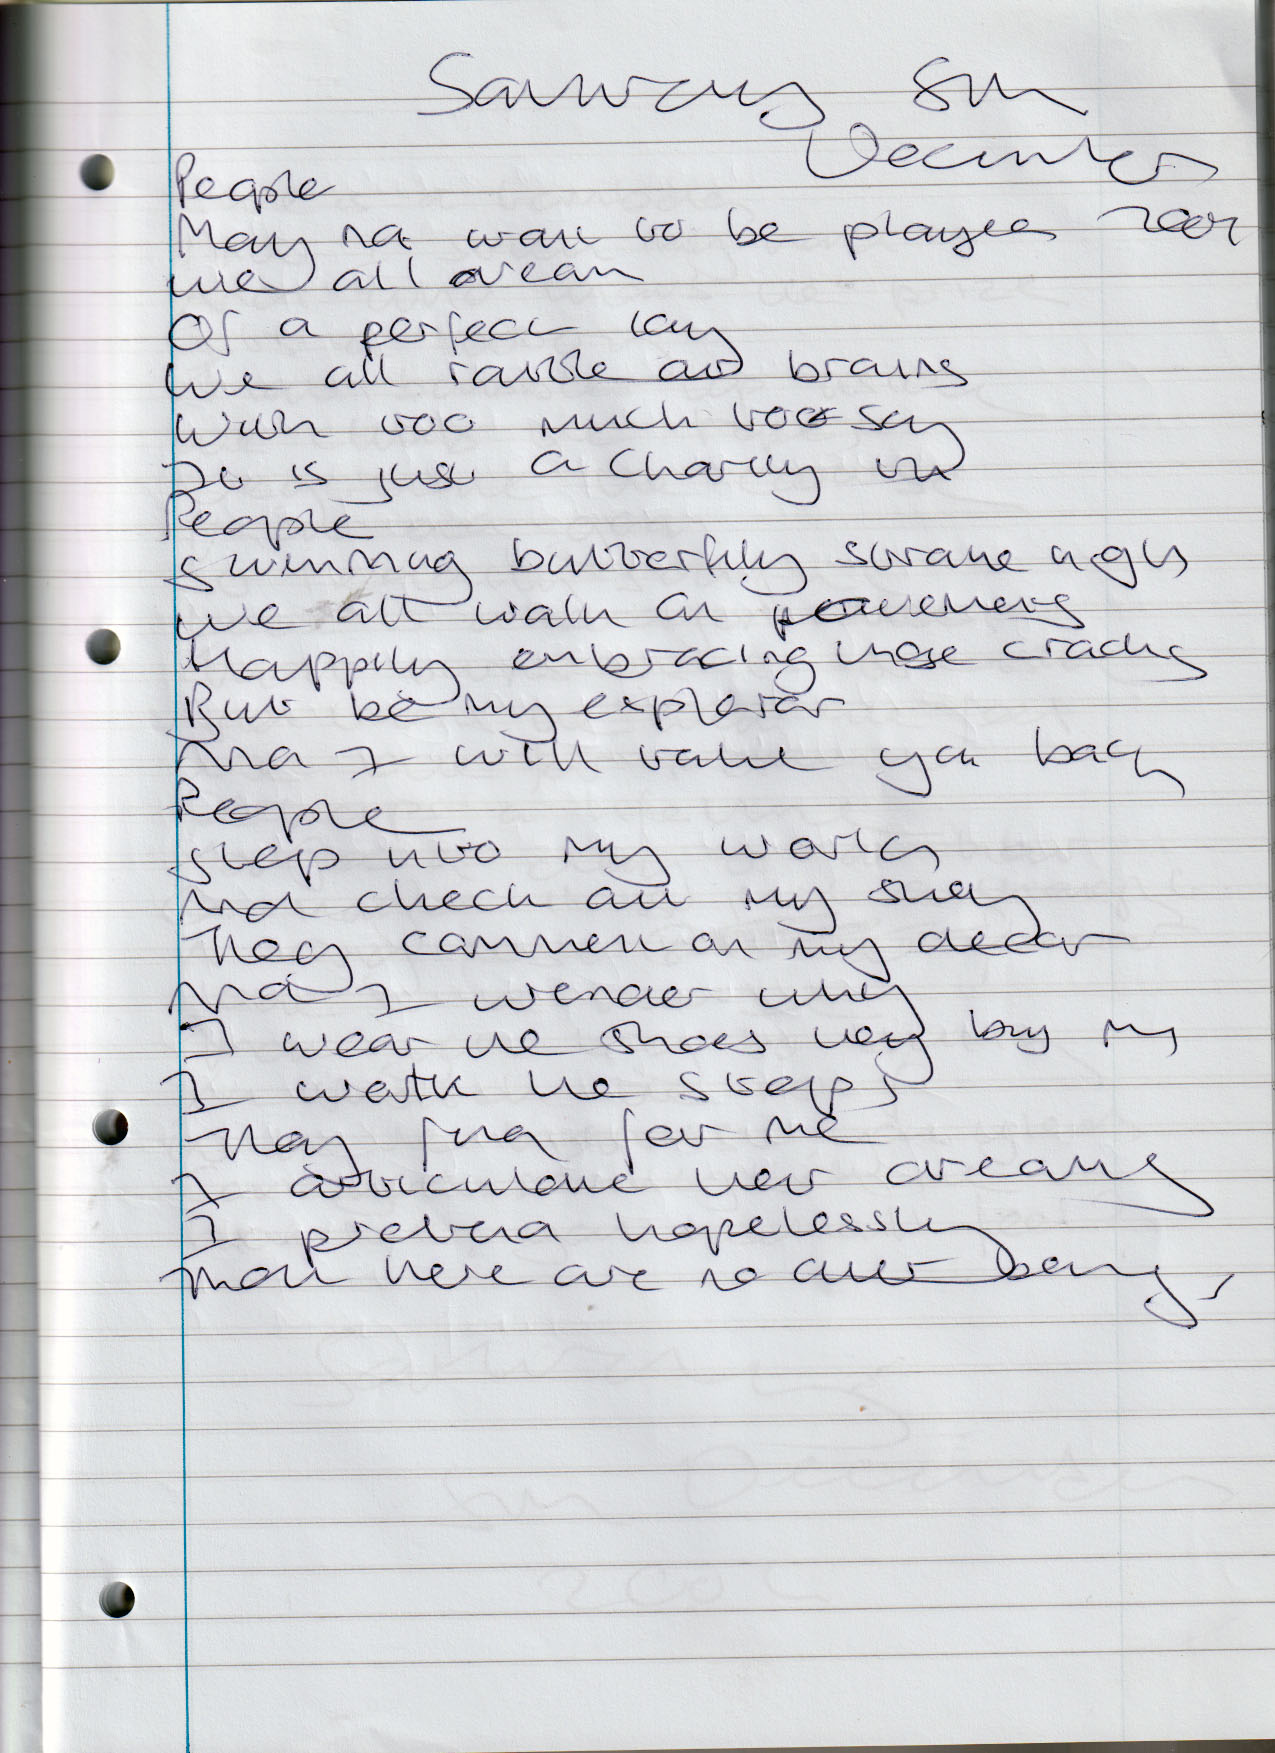 Saturday 8th
December
People
May not want to be played 2001
We all dream
Of a perfect day
We all rattle our brains
With too much to say
It is just a charity
People
Swimming butterfly strange
We all walk on pavements
Happily embracing those cracks
But be my explorer
And I will take you back
People
Step into my world
And check out my
They comment on my decor
And I wonder why
I wear the shoes they buy me
I walk the steps
They find for me
I articulate their dreams
I pretend hopelessly
That there are no